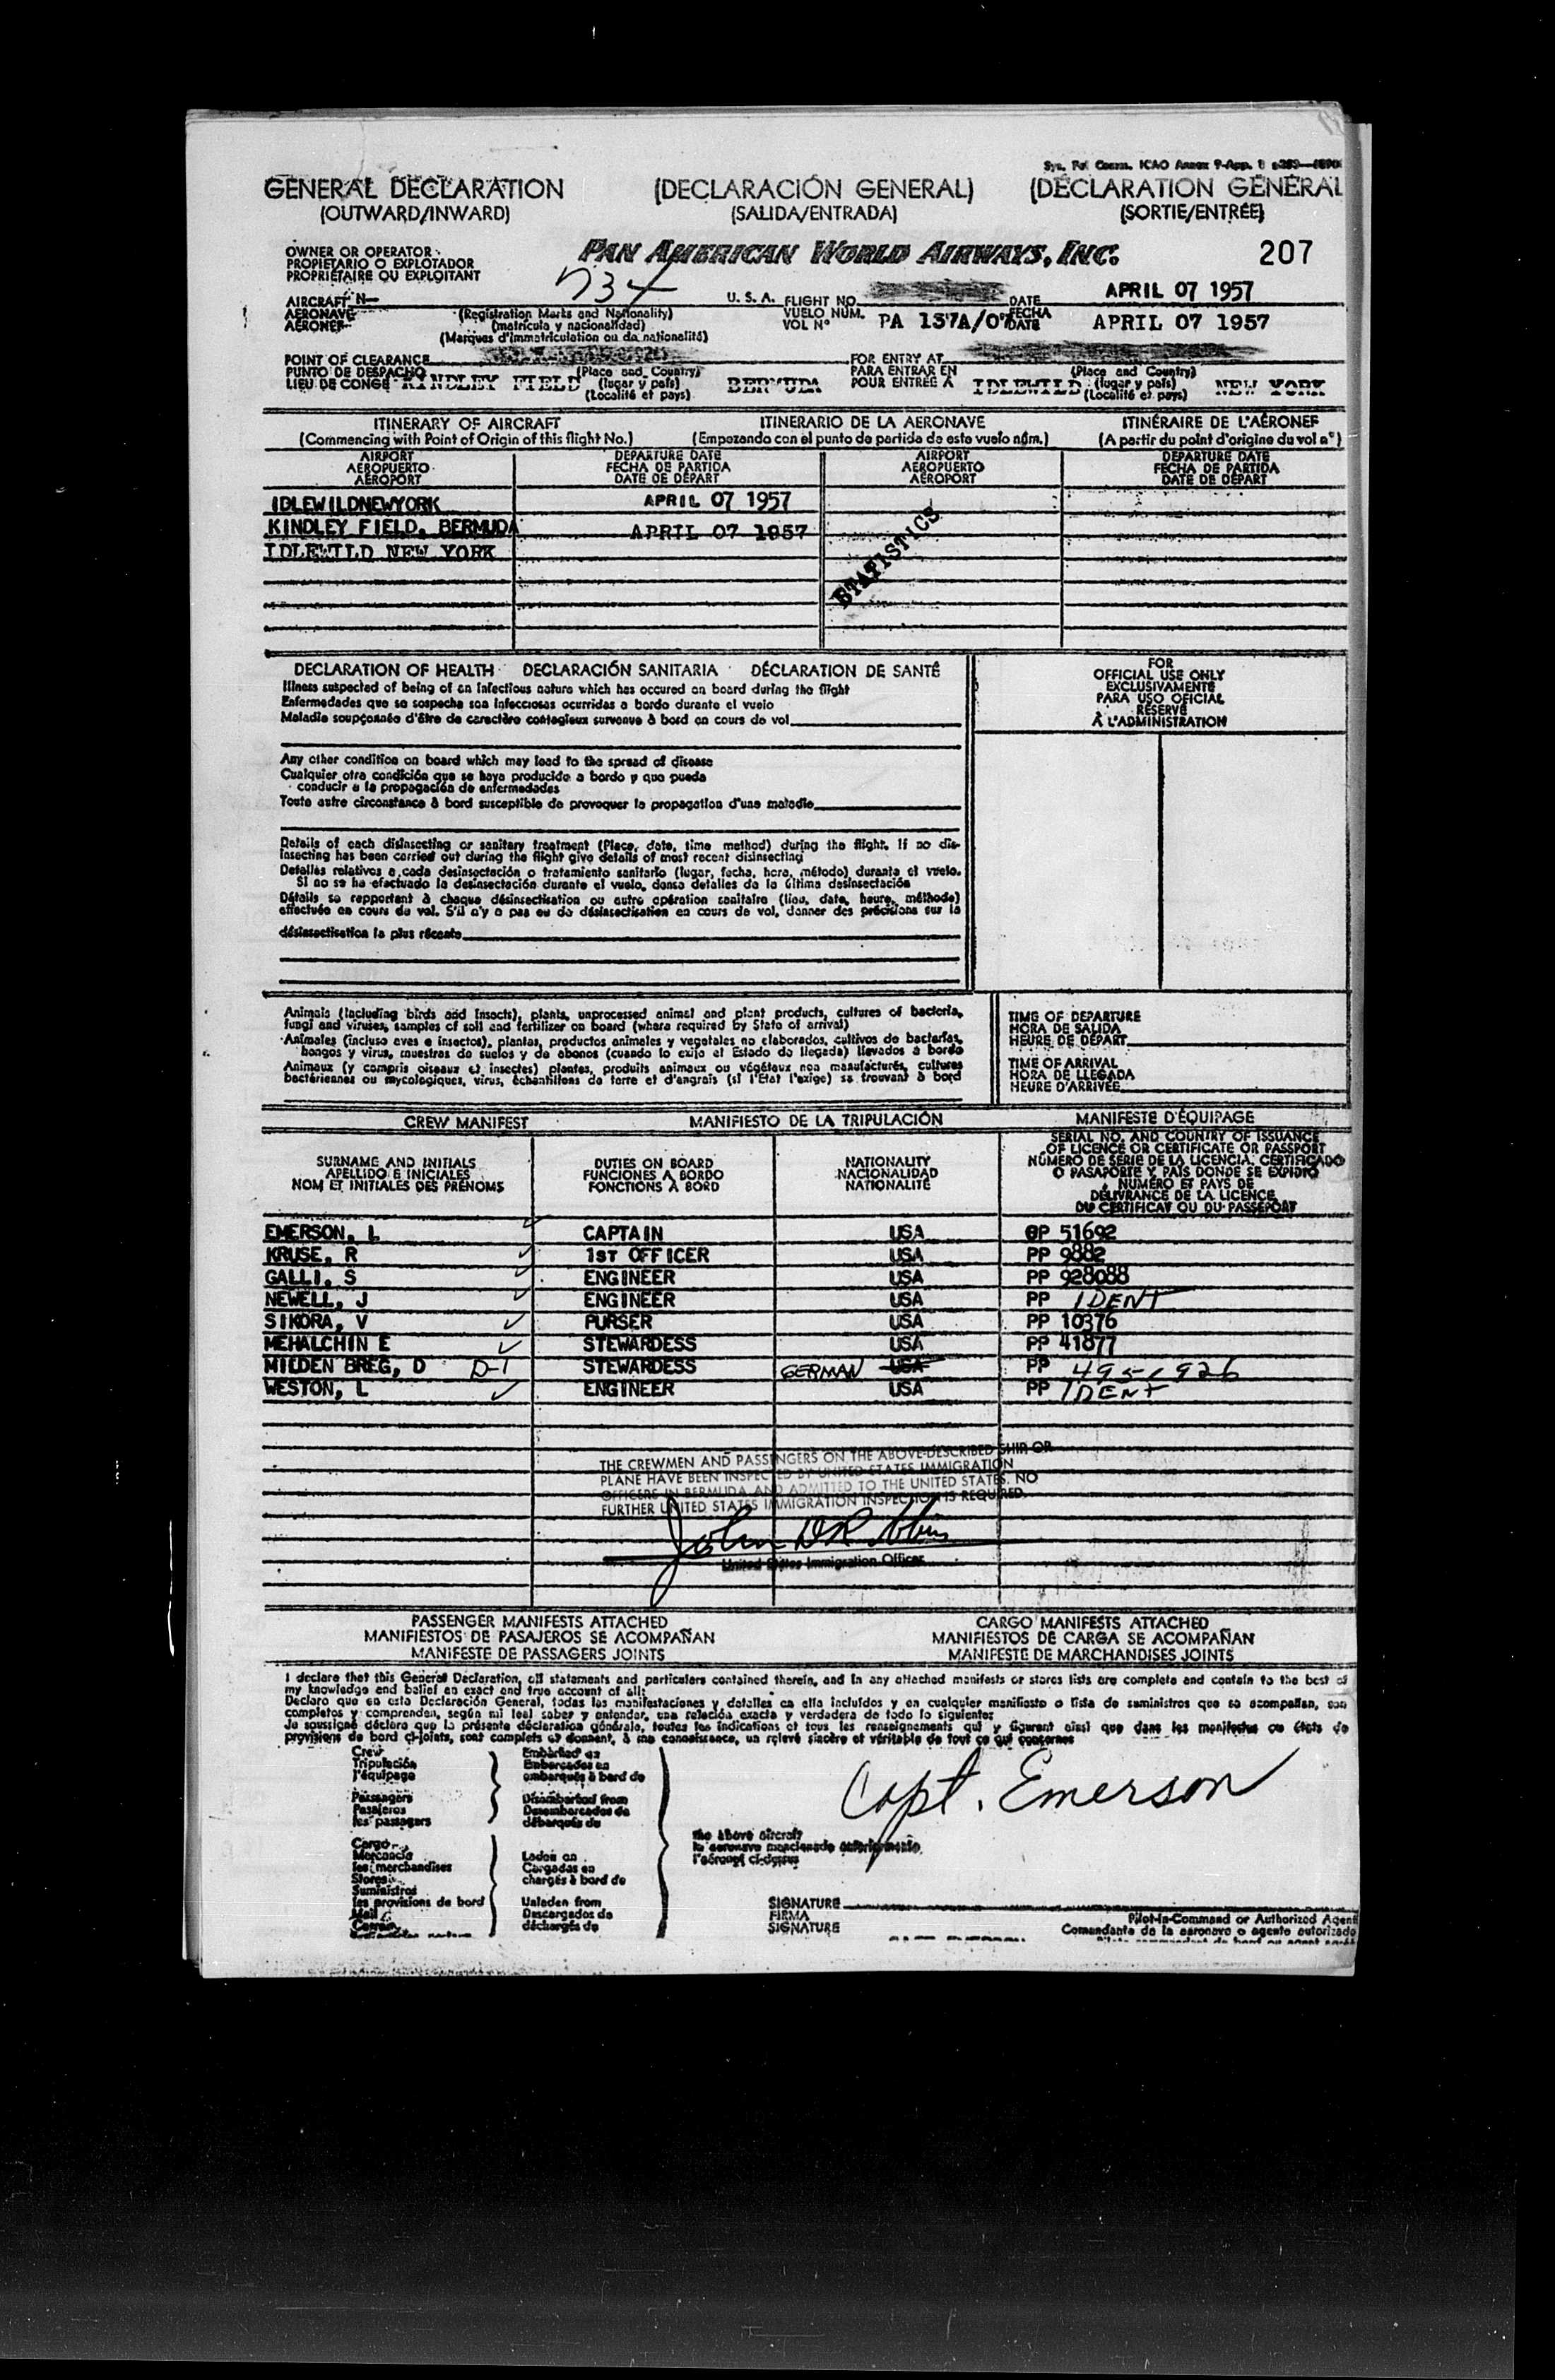 GENERAL DECLARATION (DECLARACIÓN GENERAL) (DÉCLARATION GÉNÉRAL
(OUTWARD/INWARD) (SALIDA/ENTRADA) (SORTIE/ENTRÉE)
OWNER OR OPERATOR
PROPIETARIO O EXPLOTADOR
PROPRIÉTAIRE OU EXPLOITANT
PAN AMERICAN WORLD AIRWAYS, INC. 207
AIRCRAFT N— 734 U. S. A. FLIGHT NO. DATE APRIL 07 1957
AERONAVE (Registration Marks and Nationality) VUELO NÚM. FECHA
AÉRONEF (matrícula y nacionalidad) VOL Nº PA 137A/07 DATE APRIL 07 1957
(Marques d'immatriculation ou de nationalité)
POINT OF CLEARANCE (Place and Country) FOR ENTRY AT (Place and Country)
PUNTO DE DESPACHO (lugar y país) PARA ENTRAR EN (lugar y país)
LIEU DE CONGÉ KINDLEY FIELD (Localité et pays) BERMUDA POUR ENTRÉE À IDLEWILD (Localité et pays) NEW YORK
ITINERARY OF AIRCRAFT ITINERARIO DE LA AERONAVE ITINÉRAIRE DE L'AÉRONEF
(Commencing with Point of Origin of this flight No.) (Empezando con el punto de partida de este vuelo núm.) (A partir du point d'origine du vol nº)
AIRPORT DEPARTURE DATE AIRPORT DEPARTURE DATE
AEROPUERTO FECHA DE PARTIDA AEROPUERTO FECHA DE PARTIDA
AÉROPORT DATE DE DÉPART AÉROPORT DATE DE DÉPART
IDLEWILDNEWYORK APRIL 07 1957
KINDLEY FIELD, BERMUDA APRIL 07 1957
IDLEWILD NEW YORK
STATISTICS
DECLARATION OF HEALTH DECLARACIÓN SANITARIA DÉCLARATION DE SANTÉ
Illness suspected of being of an infectious nature which has occured on board during the flight
Enfermedades que se sospecha son infecciosas ocurridas a bordo durante el vuelo
Maladie soupçonnée d'être de caractère contagieux survenue à bord en cours de vol
FOR
OFFICIAL USE ONLY
EXCLUSIVAMENTE
PARA USO OFICIAL
RÉSERVÉ
À L'ADMINISTRATION
Any other condition on board which may lead to the spread of disease
Cualquier otra condición que se haya producido a bordo y que pueda
conducir a la propagación de enfermedades
Toute autre circonstance à bord susceptible de provoquer la propagation d'une maladie
Details of each disinsecting or sanitary treatment (Place, date, time method) during the flight. If no dis-
insecting has been carried out during the flight give details of most recent disinsecting
Detalles relativos a cada desinsectación o tratamiento sanitario (lugar, fecha, hora, método) durante el vuelo.
Si no se ha efectuado la desinsectación durante el vuelo, dense detalles de la última desinsectación
Détails se rapportent à chaque désinsectisation ou autre opération sanitaire (lieu, date, heure, méthode)
effectuée en cours de vol. S'il n'y a pas eu de désinsectisation en cours de vol, donner des précisions sur la
désinsectisation la plus récente
Animals (including birds and insects), plants, unprocessed animal and plant products, cultures of bacteria,
fungi and viruses, samples of soil and fertilizer on board (where required by State of arrival)
Animales (incluso aves e insectos), plantas, productos animales y vegetales no elaborados, cultivos de bacterias,
hongos y virus, muestras de suelos y de abonos (cuando lo exija el Estado de llegada) llevados a bordo
Animaux (y compris oiseaux et insectes) plantes, produits animaux ou végétaux non manufacturés, cultures
bactériennes ou mycologiques, virus, échantillons de terre et d'engrais (si l'État l'exige) se trouvant à bord
TIME OF DEPARTURE
HORA DE SALIDA
HEURE DE DÉPART
TIME OF ARRIVAL
HORA DE LLEGADA
HEURE D'ARRIVÉE
CREW MANIFEST MANIFIESTO DE LA TRIPULACIÓN MANIFESTE D'ÉQUIPAGE
SURNAME AND INITIALS
APELLIDO E INICIALES
NOM ET INITIALES DES PRÉNOMS
DUTIES ON BOARD
FUNCIONES A BORDO
FONCTIONS À BORD
NATIONALITY
NACIONALIDAD
NATIONALITÉ
SERIAL NO. AND COUNTRY OF ISSUANCE
OF LICENCE OR CERTIFICATE OR PASSPORT
NÚMERO DE SERIE DE LA LICENCIA, CERTIFICADO
O PASAPORTE Y PAÍS DONDE SE EXPIDIÓ
NUMÉRO ET PAYS DE
DÉLIVRANCE DE LA LICENCE,
DU CERTIFICAT OU DU PASSEPORT
EMERSON, L ✓ CAPTAIN USA PP 51692
KRUSE, R ✓ 1ST OFFICER USA PP 9882
GALLI, S ✓ ENGINEER USA PP 928088
NEWELL, J ✓ ENGINEER USA PP IDENT
SIKORA, V ✓ PURSER USA PP 10376
MEHALCHIN E ✓ STEWARDESS USA PP 41877
MILDEN BREG, D D-1 STEWARDESS GERMAN USA PP 495-1926
WESTON, L ✓ ENGINEER USA PP IDENT
THE CREWMEN AND PASSENGERS ON THE ABOVE-DESCRIBED SHIP OR
PLANE HAVE BEEN INSPECTED BY UNITED STATES IMMIGRATION
OFFICERS IN BERMUDA AND ADMITTED TO THE UNITED STATES. NO
FURTHER UNITED STATES IMMIGRATION INSPECTION IS REQUIRED.
John D Robbins
United States Immigration Officer
PASSENGER MANIFESTS ATTACHED CARGO MANIFESTS ATTACHED
MANIFIESTOS DE PASAJEROS SE ACOMPAÑAN MANIFIESTOS DE CARGA SE ACOMPAÑAN
MANIFESTE DE PASSAGERS JOINTS MANIFESTE DE MARCHANDISES JOINTS
I declare that this General Declaration, all statements and particulars contained therein, and in any attached manifests or stores lists are complete and contain to the best of
my knowledge and belief an exact and true account of all:
Declaro que en esta Declaración General, todas las manifestaciones y detalles en ella incluidos y en cualquier manifiesto o lista de suministros que se acompañan, son
completos y comprenden, según mi leal saber y entender, una relación exacta y verdadera de todo lo siguiente:
Je soussigné déclare que la présente déclaration générale, toutes les indications et tous les renseignements qui y figurent ainsi que dans les manifestes ou états de
provisions de bord ci-joints, sont complets et donnent, à ma connaissance, un relevé sincère et véritable de tout ce qui concerne
Crew
Tripulación
l'équipage
Passengers
Pasajeros
les passagers
Embarked on
Embarcados en
embarqués à bord de
Disembarked from
Desembarcados de
débarqués de
Cargo
Mercancía
les marchandises
Stores
Suministros
les provisions de bord
Mail
Correo
Laden on
Cargadas en
chargés à bord de
Unladen from
Descargados de
déchargés de
the above aircraft
la aeronave mencionada anteriormente
l'aéronef ci-dessus
Capt. Emerson
SIGNATURE
FIRMA
SIGNATURE
Pilot-in-Command or Authorized Agent
Comandante de la aeronave o agente autorizado